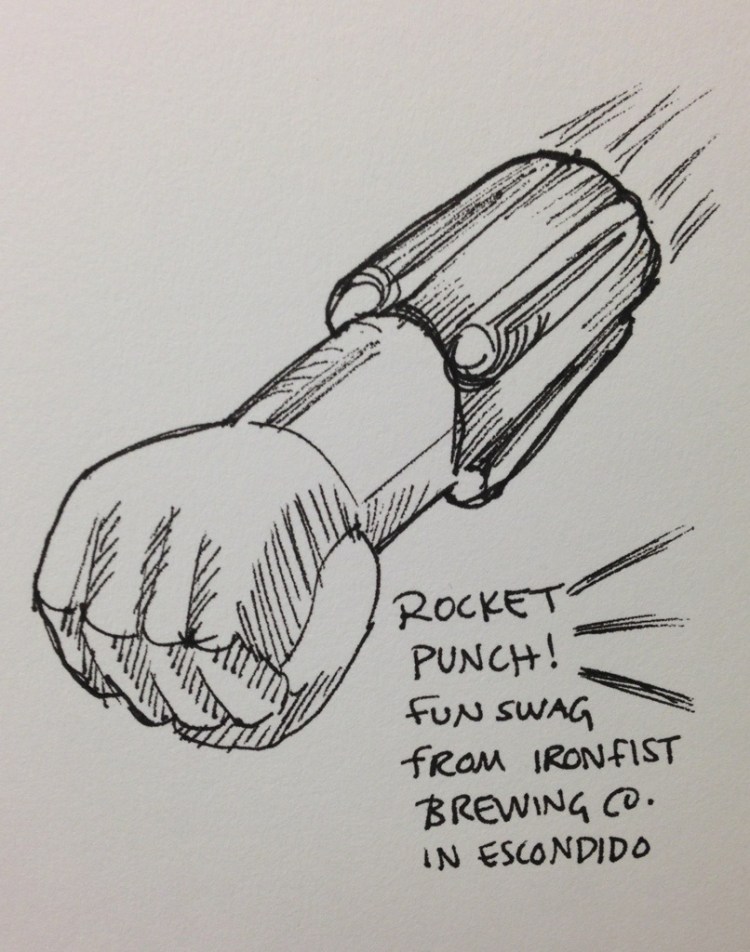 ROCKET
PUNCH!
FUN SWAG
FROM IRONFIST
BREWING CO.
IN ESCONDIDO